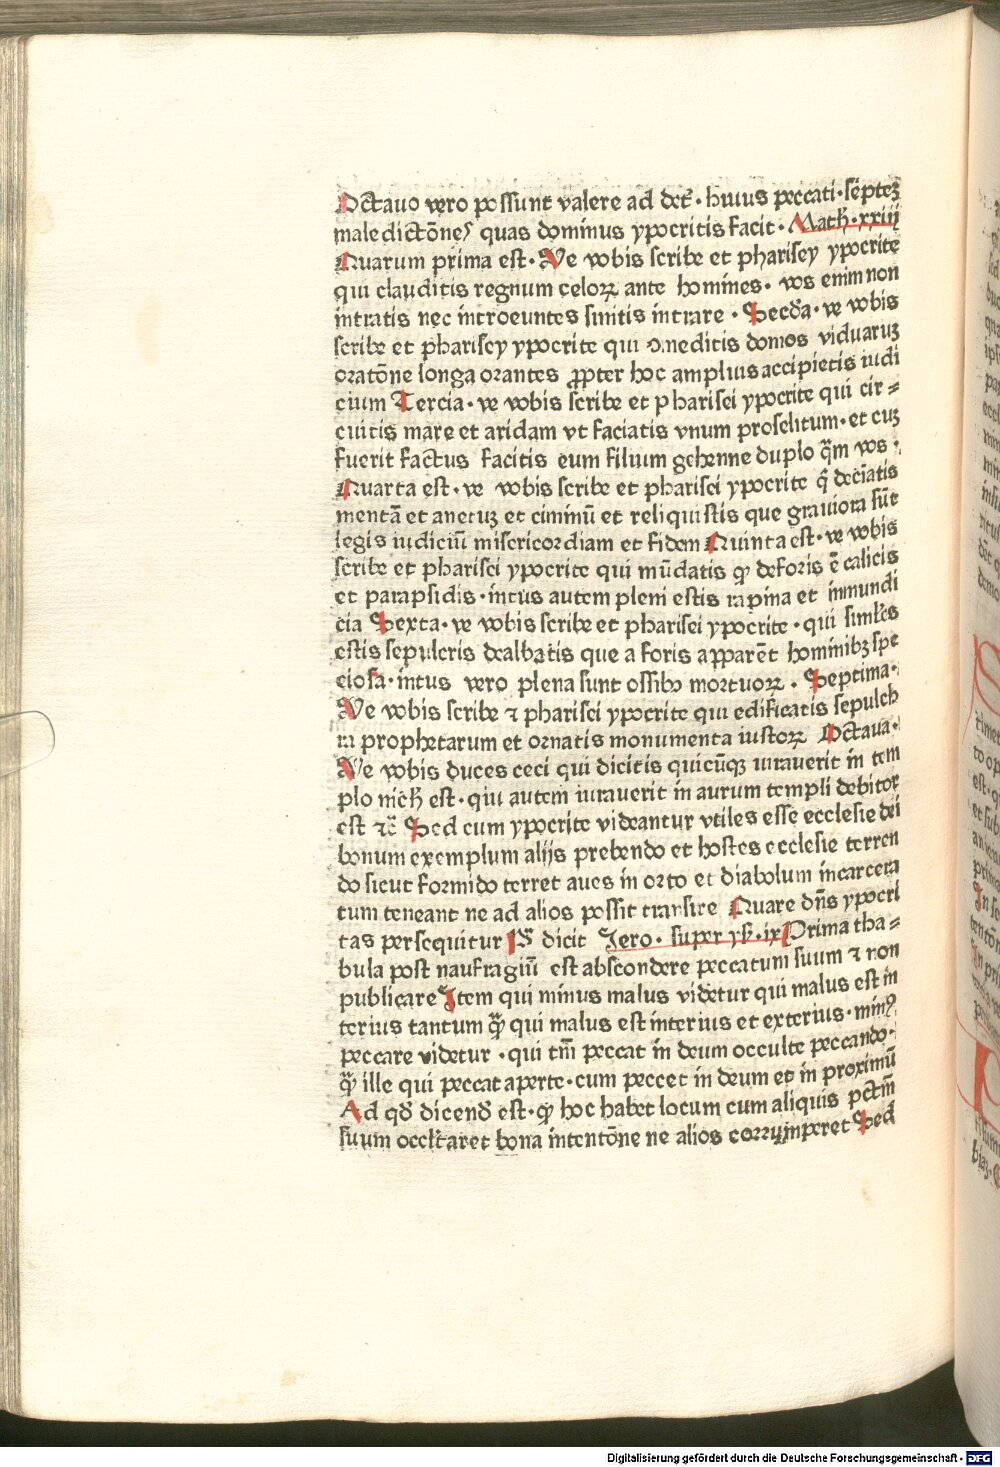 Octauo vero possunt valere ad det̄· huius peccati·septeꝫ
maledictōnes quas dominus ypocritis facit· Math̄·xxiij
Quarum prima est· Ve vobis scribe et pharisey ypocrite
qui clauditis regnum celoꝝ ante homines· vos enim non
intratis nec introeuntes sinitis intrare· Secd̄a· ve vobis
scribe et pharisey ypocrite qui ꝯmeditis domos viduaruꝫ
oratōne longa orantes ꝓpter hoc amplius accipietis iudi
cium Tercia· ve vobis scribe et pharisei ypocrite qui cir⸗
cuitis mare et aridam vt faciatis vnum proselitum· et cuꝫ
fuerit factus facitis eum filium gehenne duplo q̄m vos·
Quarta est· ve vobis scribe et pharisei ypocrite q̄ deciātis
mentā et anetuꝫ et ciminū et reliquistis que grauiora sūt
legis iudiciū misericordiam et fidem Quinta est· ve vobis
scribe et pharisei ypocrite qui mūdatis ꝙ deforis ē calicis
et parapsidis· intus autem pleni estis rapina et inmundi
cia Sexta· ve vobis scribe et pharisei ypocrite· qui simłes
estis sepulcris dealbatis que a foris apparēt hominibꝫ spe
ciosa· intus vero plena sunt ossibꝫ mortuoꝝ· Septima·
Ve vobis scribe ⁊ pharisei ypocrite qui edificatis sepulch
ra prophetarum et ornatis monumenta iustoꝝ Octaua·
Ve vobis duces ceci qui dicitis quicūqꝫ iurauerit in tem
plo nich̄ est· qui autem iurauerit in aurum templi debitor
est ⁊c̄ Sed cum ypocrite videantur vtiles esse ecclesie dei
bonum exemplum alijs prebendo et hostes ecclesie terren
do sicut formido terret aues in orto et diabolum incarcera
tum teneant ne ad alios possit transire Quare dn̄s ypocri
tas persequitur R̄ dicit Jero· super ys̄·ix Prima tha⸗
bula post naufragiū est abscondere peccatum suum ⁊ non
publicare Item qui minus malus videtur qui malus est in
terius tantum q̄ꝫ qui malus est interius et exterius· minꝰ
peccare videtur· qui tm̄ peccat in deum occulte peccando·
q̄ꝫ ille qui peccat aperte· cum peccet in deum et in proximū
Ad qd̄ dicend̄ est· ꝙ hoc habet locum cum aliquis pctm̄
suum occltaret bona intentōne ne alios corrumperet Sed
Digitalisierung gefördert durch die Deutsche Forschungsgemeinschaft · DFG